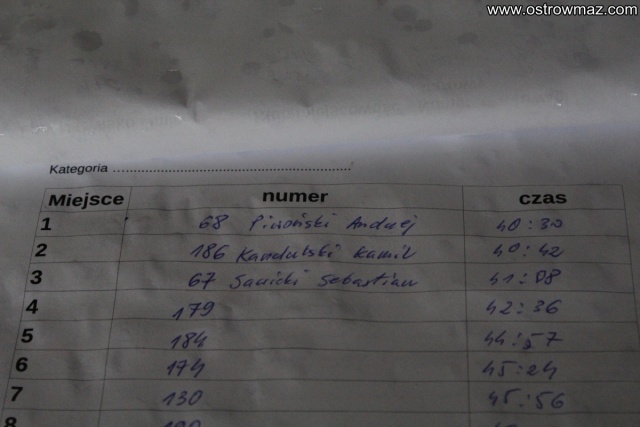 www.ostrowmaz.com
Kategoria ....................................................................
Miejsce numer czas
1 68 Piwoński Andrzej 40:30
2 186 Kandulski Kamil 40:42
3 67 Sawicki Sebastian 41:08
4 179 42:36
5 184 44:57
6 174 45:24
7 130 45:56
8